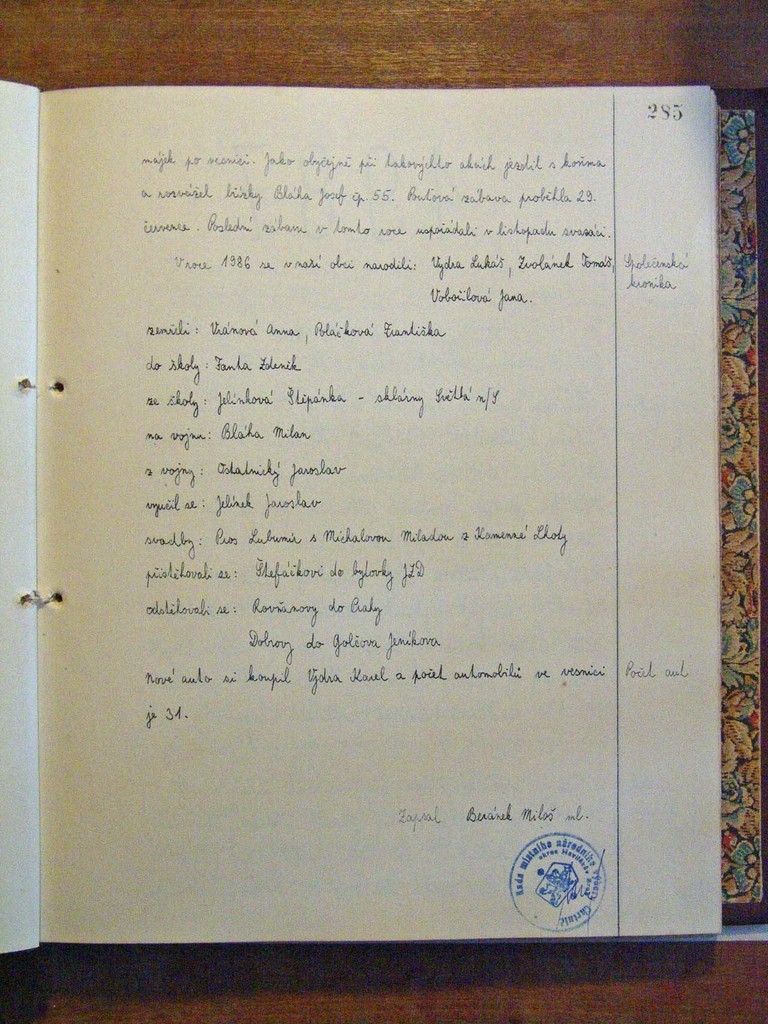 285
májek po vesnici. Jako obyčejně při takovýchto akcích jezdil s koňma
a rozvážel břízky Bláha Josef čp. 55. Pouťová zábava proběhla 29.
července. Poslední zábavu v tomto roce uspořádali v listopadu svazáci.
V roce 1986 se v naší obci narodili: Vydra Lukáš, Zvolánek Tomáš, Společenská
Vobořilová Jana. kronika
zemřeli: Vránová Anna, Poláčková Františka
do školy: Fanta Zdeněk
ze školy: Jelínková Štěpánka - sklárny Světlá n/S
na vojnu: Bláha Milan
z vojny: Ostatnický Jaroslav
vyučil se: Jelínek Jaroslav
svadby: Pros Lubomír s Michalovou Miladou z Kamenné Lhoty
přistěhovali se: Štefáčkovi do bytovky JZD
odstěhovali se: Rovňanovy do Prahy
Dobrovy do Golčova Jeníkova
Nové auto si koupil Vydra Karel a počet automobilů ve vesnici Počet aut
je 31.
Zapsal Beránek Miloš ml.
Rada místního národního výboru
okres Havlíčkův Brod